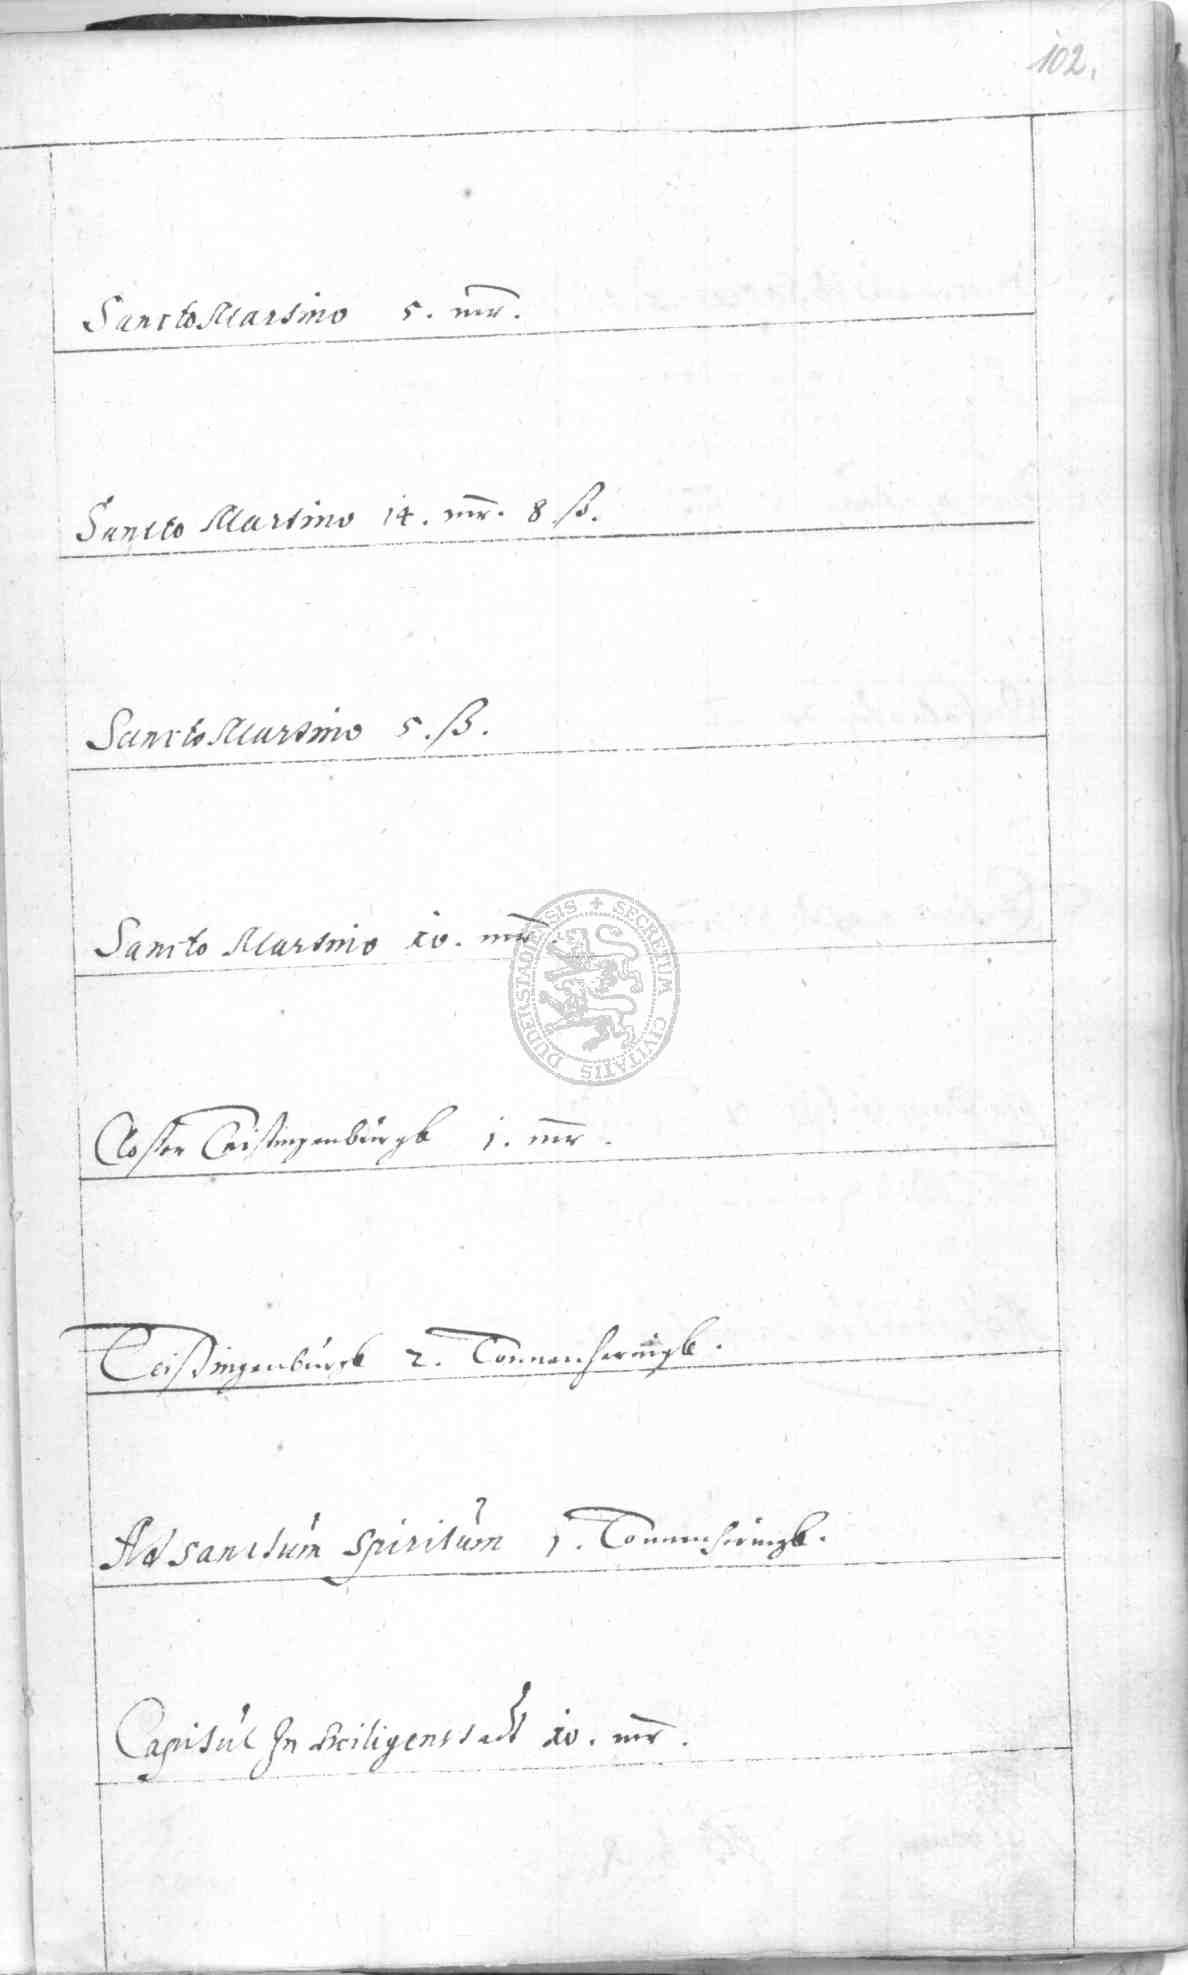 102.
Sancto Martino 5. mr.
Sancto Martino 14. mr. 8 ß.
Sancto Martino 5. ß.
Sancto Martino 10. mr.
SECRETUM CIVITATIS DUDERSTADIENSIS
Closter Teistingenburgk 1. mr.
Teistingenburgk 2. Tonnen heringk.
Ad sanctum Spiritum 1. Tonnen heringk.
Capitul In Heiligenstadt 10. mr.